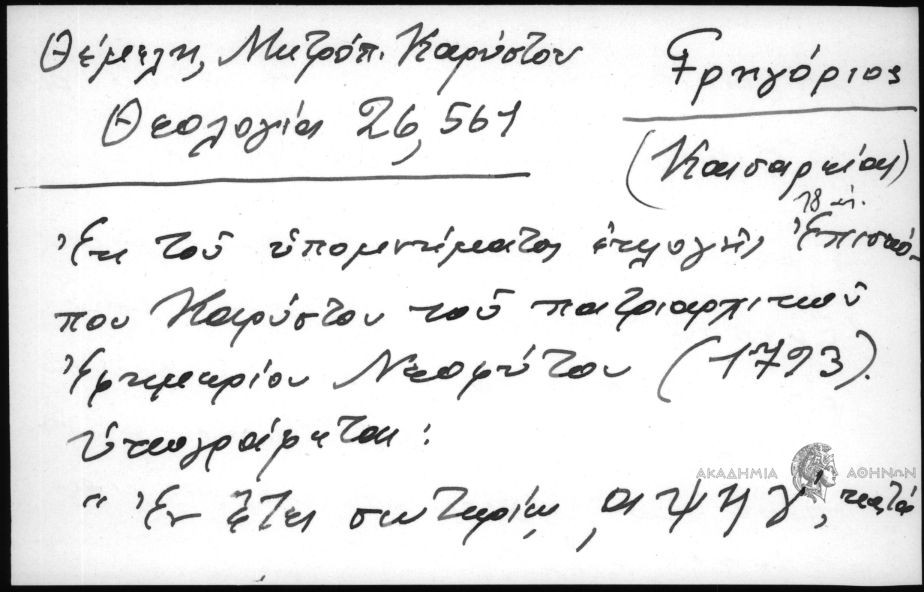 Θέμελη, Μητρόπ. Καρύστου
Θεολογία 26, 561
Γρηγόριος
(Καισαρείας)
18 αι.
Ἐκ τοῦ ὑπομνήματος ἐκλογῆς Ἐπισκό-
που Καρύστου τοῦ πατριαρχικοῦ
Ἐφημερίου Νεοφύτου (1793).
ὑπογράφεται:
ΑΚΑΔΗΜΙΑ ΑΘΗΝΩΝ
" Ἐν ἔτει σωτηρίῳ, ͵αψϞγ', κατά